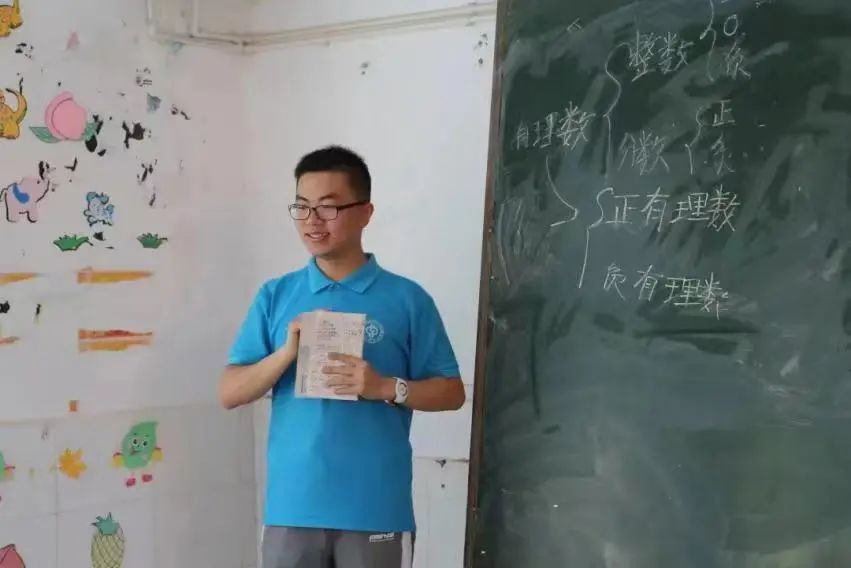 0
整数
负
有理数
正
分数
负
正有理数
负有理数